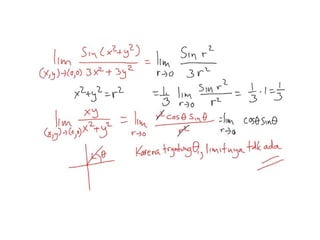 lim (x,y)→(0,0) Sin(x²+y²) / 3x²+3y² = lim r→0 Sin r² / 3r²
x²+y²=r² = 1/3 lim r→0 Sin r² / r² = 1/3 · 1 = 1/3
lim (x,y)→(0,0) xy / x²+y² = lim r→0 r² cosθ sinθ / r² = lim r→0 cosθ sinθ
θ Karena trgantung θ, limitnya tdk ada